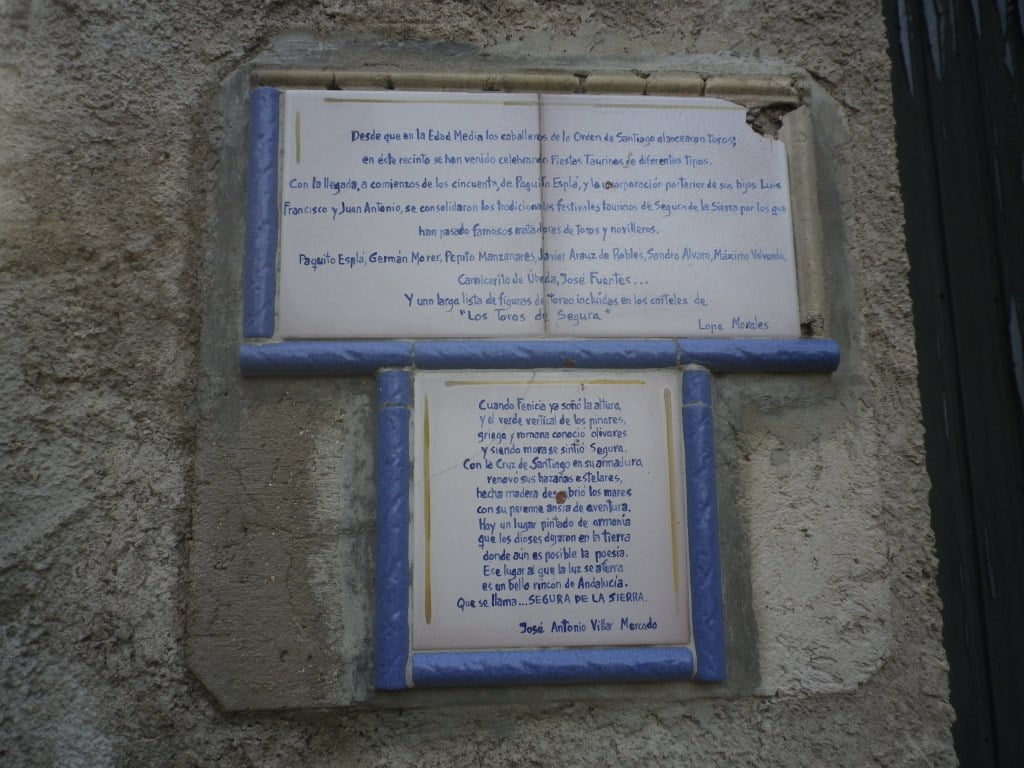 Desde que en la Edad Media los caballeros de la Orden de Santiago alancearon toros,
en éste recinto se han venido celebrando Fiestas Taurinas de diferentes tipos.
Con la llegada, a comienzos de los cincuenta, de Paquito Esplá, y la incorporación posterior de sus hijos Luis
Francisco y Juan Antonio, se consolidaron los tradicionales festivales taurinos de Segura de la Sierra por los que
han pasado famosos matadores de Toros y novilleros.
Paquito Esplá, Germán Morer, Pepito Manzanares, Javier Arauz de Robles, Sandro Alvaro, Máximo Valverde,
Carnicerito de Úbeda, José Fuentes...
Y una larga lista de figuras de Toreo incluidas en los carteles de
"Los Toros de Segura"
Lope Morales
Cuando Fenicia ya soñó la altura
y el verde vertical de los pinares,
griega y romana conoció olivares
y siendo mora se sintió Segura.
Con la Cruz de Santiago en su armadura,
renovó sus hazañas estelares,
hecha madera descubrió los mares
con su perenne ansia de aventura.
Hay un lugar pintado de armonía
que los dioses dejaron en la tierra
donde aún es posible la poesía.
Ese lugar al que la luz se aferra
es un bello rincón de Andalucía.
Que se llama...SEGURA DE LA SIERRA.
José Antonio Villar Mercado